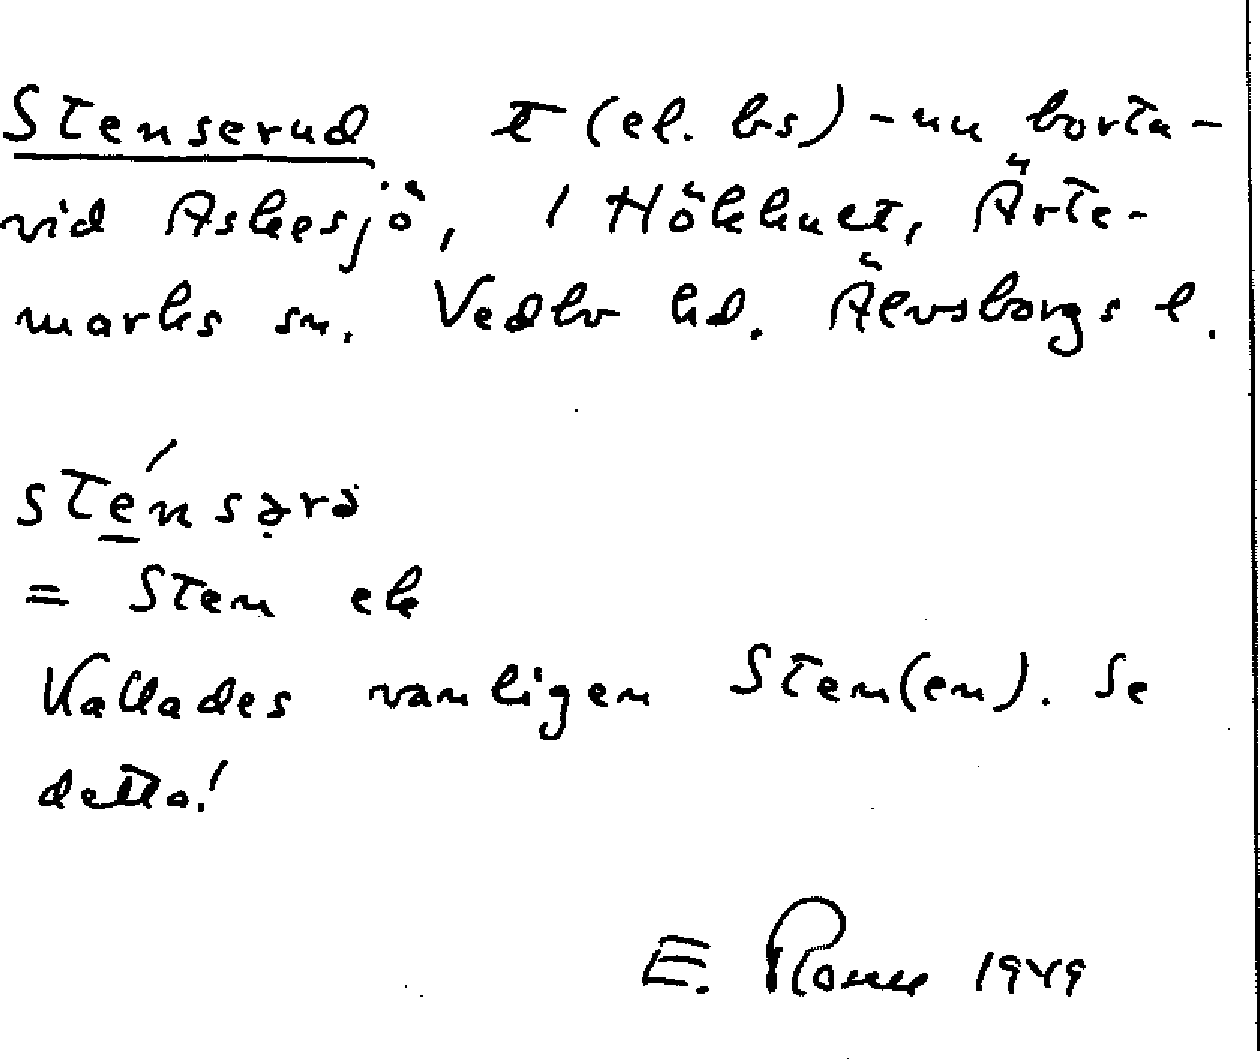 Stenserud t (el. bs) - nu borta -
vid Askesjö, 1 Hökhult, Ärte-
marks sn. Vedbo hd. Älvsborgs l.
sténsərə
= Sten ek
Kallades vanligen Sten(en). Se
detta!
E. 1949